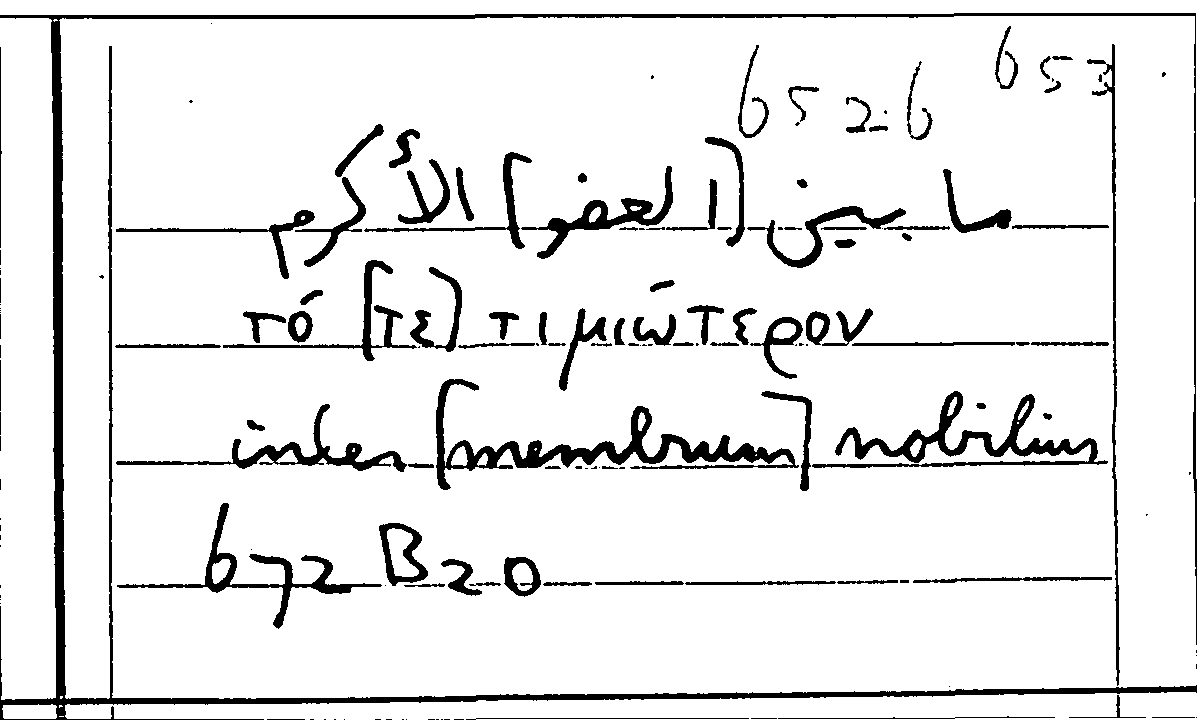 652.6 653
ما بين [العضو] الأكرم
τό [τε] τιμιώτερον
inter [membrum] nobilius
672 B 20